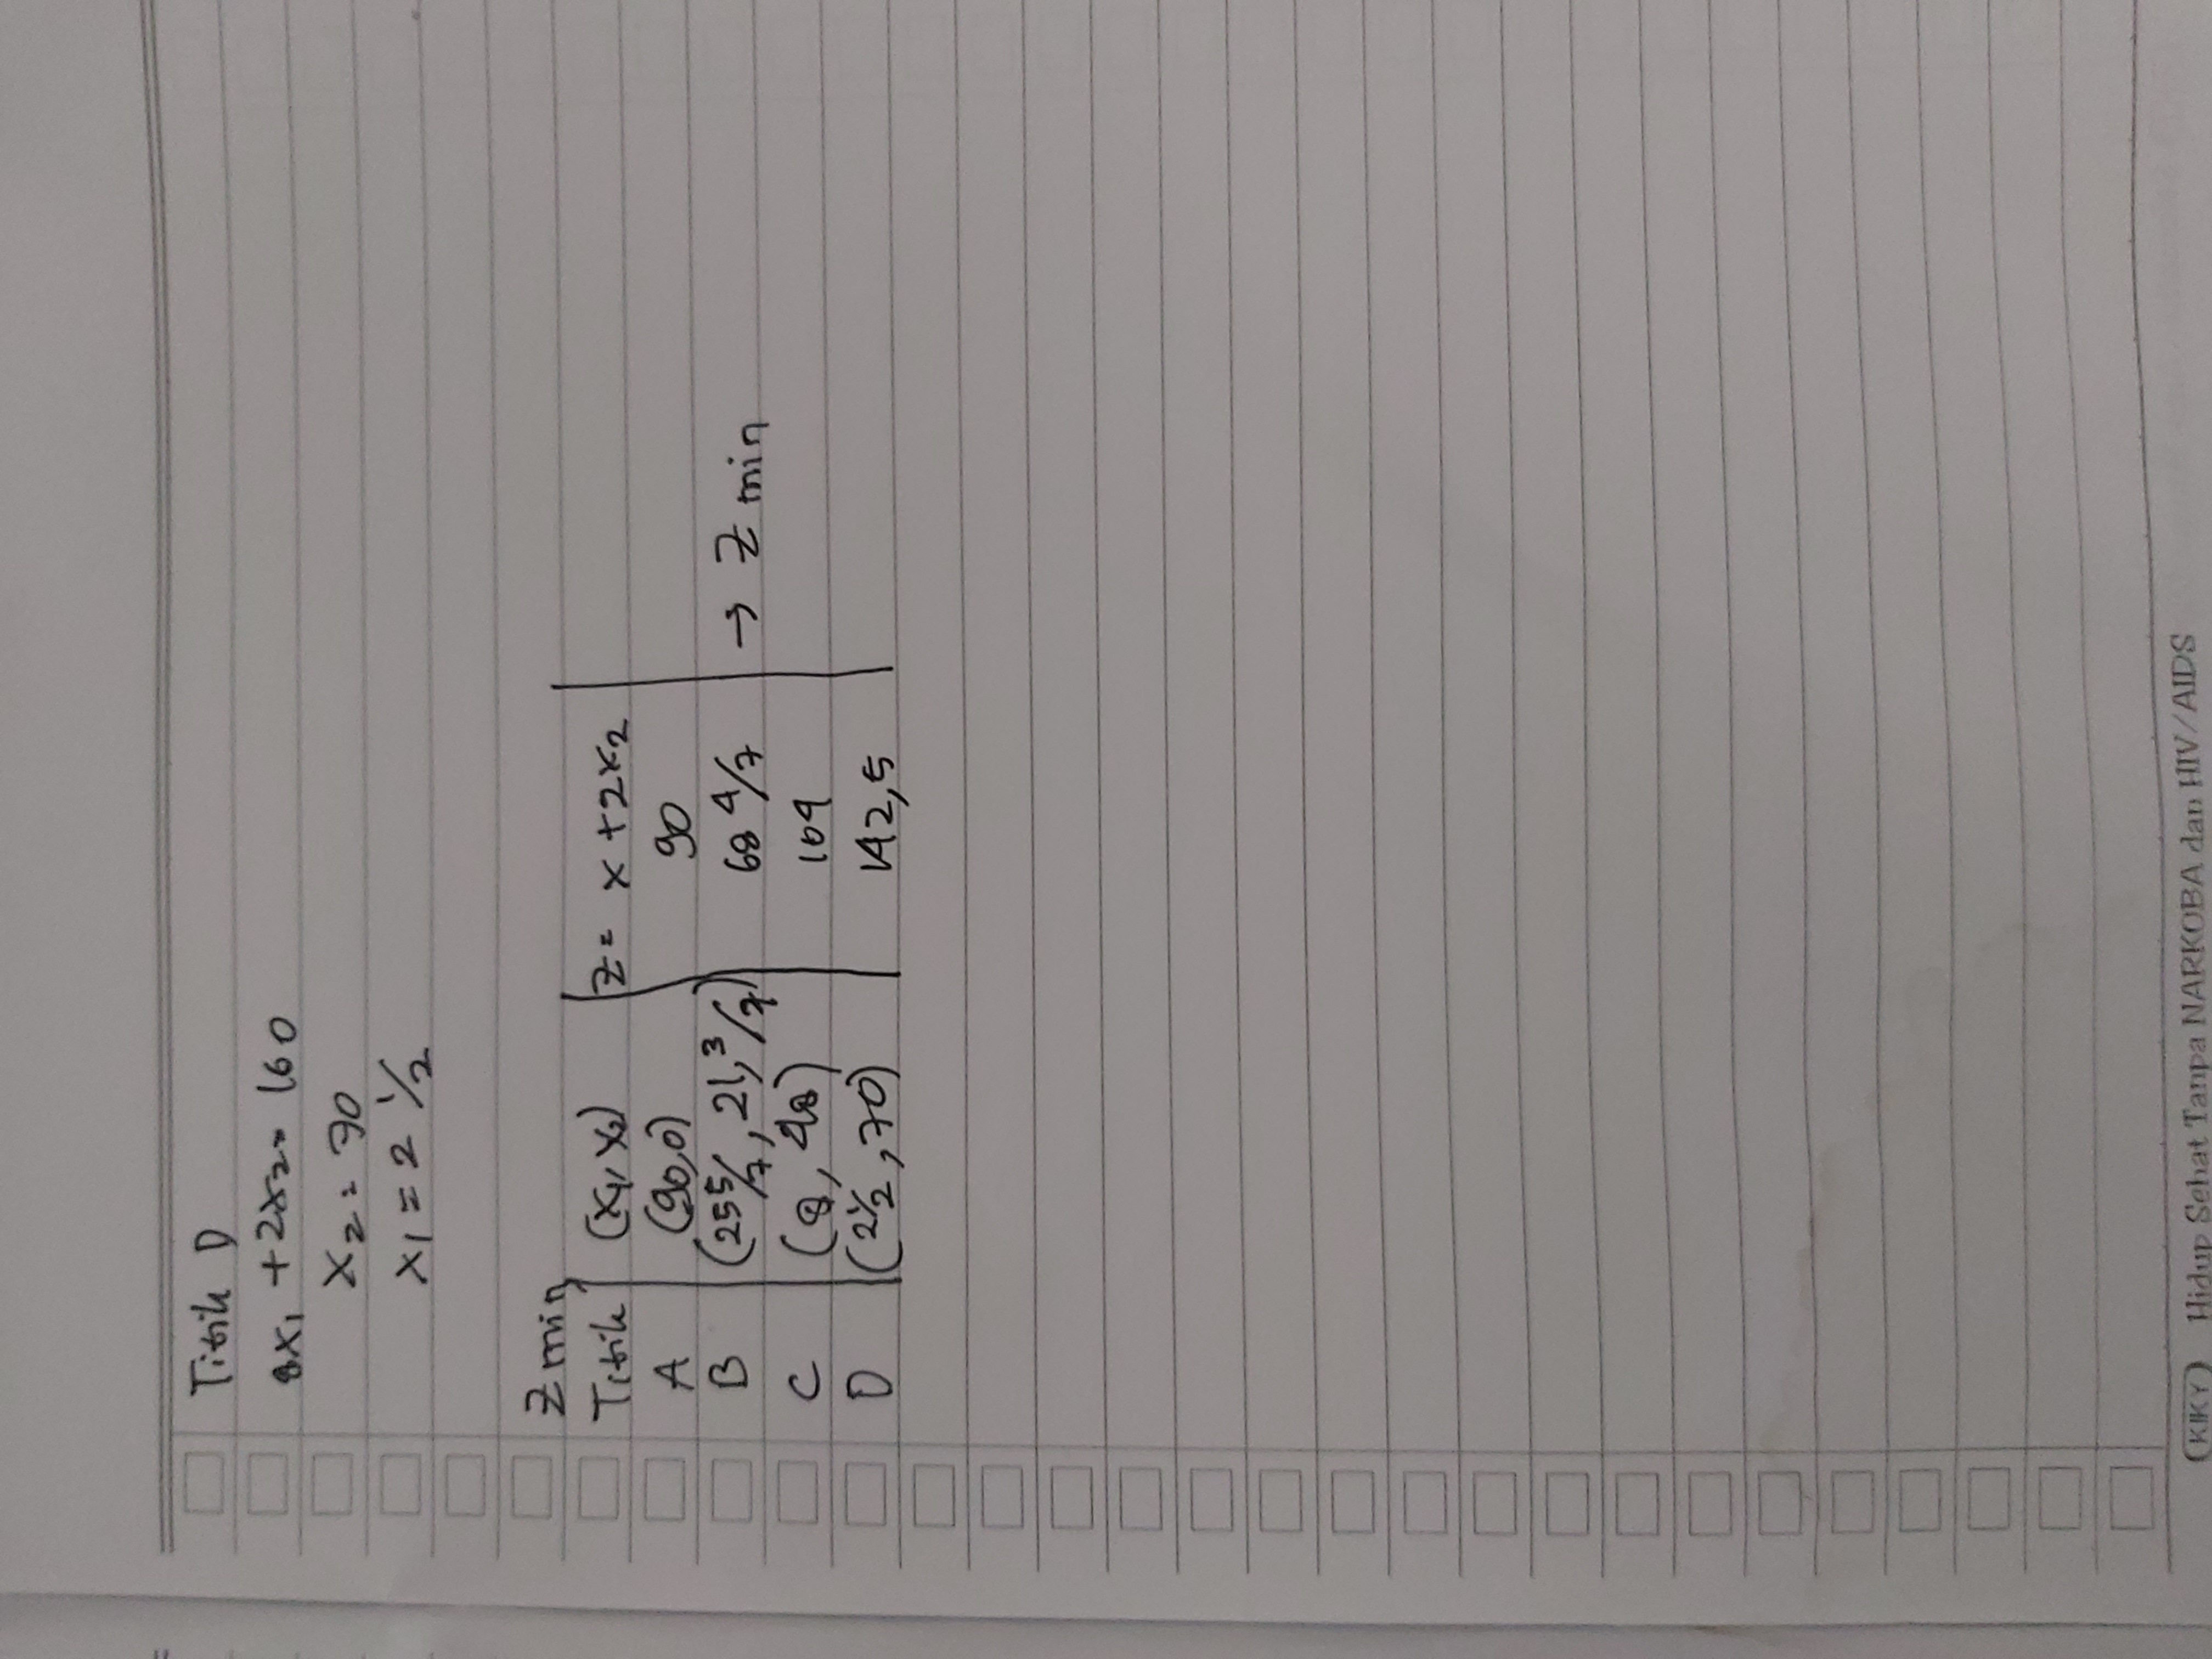 Titik D
8x1 + 2x2 = 160
x2 = 70
x1 = 2 1/2
Z min
Titik (x1, x2) Z = x + 2x2
A (90,0) 90
B (25 5/7, 21, 3/7) 68 4/7 → Z min
C (8, 48) 104
D (2 1/2, 70) 142,5
KIKY Hidup Sehat Tanpa NARKOBA dan HIV/AIDS